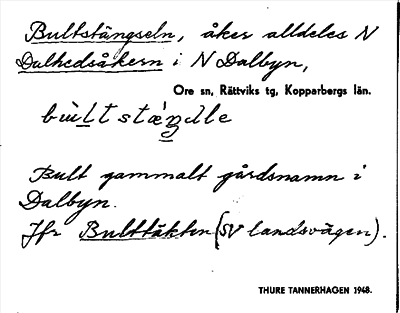 Bultstängseln, åker alldeles N
Dalhedsåkern i N Dalbyn,
Ore sn, Rättviks tg, Kopparbergs län.
bùltstǽŋdle
Bult gammalt gårdsnamn i
Dalbyn.
Jfr Bulttäkten (SV landsvägen).
THURE TANNERHAGEN 1948.